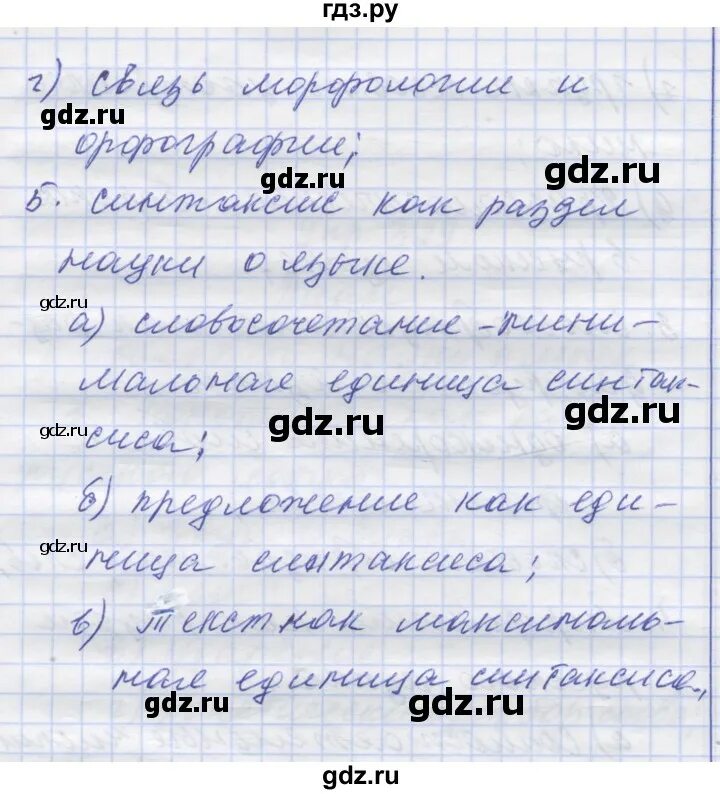 гдз.ру
г) связь морфологии и
gdz.ru
орфографии;
gdz.ru
gdz.ru
5. синтаксис как раздел
науки о языке.
gdz.ru
а) словосочетание - мини-
мальная единица синтак-
gdz.ru
gdz.ru
gdz.ru
сиса;
б) предложение как еди-
gdz.ru
ница синтаксиса;
в) текст как максималь-
ная единица синтаксиса.,
gdz.ru
gdz.ru
gdz.ru